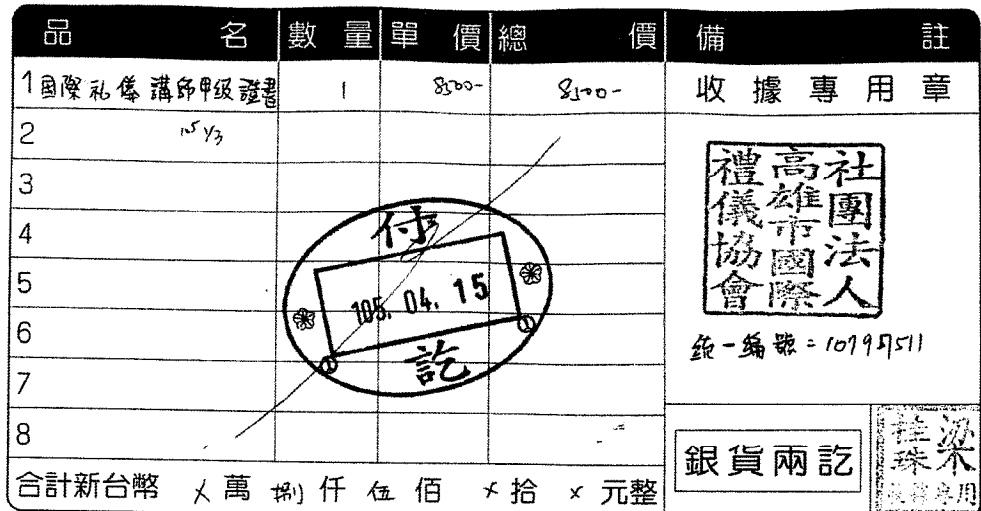 品名 數量 單價 總價 備註
1 國際礼儀講師甲級證書 1 8500- 8500- 收據專用章
2 105 1/3
3
4
5
6
7
8
付
105. 04. 15
訖
社團法人
高雄市國際
禮儀協會
統一編號=
銀貨兩訖
梁
桂珠
專用
合計新台幣 X萬 捌仟 伍佰 X拾 X元整